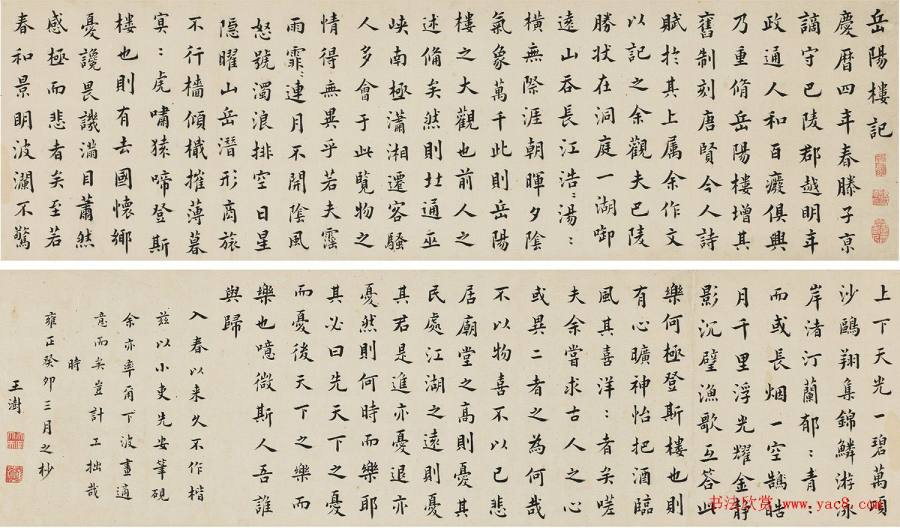 岳陽樓記
慶曆四年春滕子京
謫守巴陵郡越明年
政通人和百癈俱興
乃重脩岳陽樓增其
舊制刻唐賢今人詩
賦於其上属余作文
以記之余觀夫巴陵
勝状在洞庭一湖啣
逺山吞長江浩〻湯〻
橫無際涯朝暉夕陰
氣象萬千此則岳陽
樓之大觀也前人之
述備矣然則北通巫
峽南極瀟湘遷客騷
人多會于此覽物之
情得無異乎若夫霪
雨霏〻連月不開陰風
怒號濁浪排空日星
隠曜山岳潛形商旅
不行檣傾檝摧薄暮
冥〻虎嘯猿啼登斯
樓也則有去國懷鄉
憂讒畏譏滿目蕭然
感極而悲者矣至若
春和景明波瀾不驚
上下天光一碧萬頃
沙鷗翔集錦鱗游泳
岸渚汀蘭郁〻青〻
而或長烟一空鵠皓
月千里浮光耀金静
影沉璧漁歌互答此
樂何極登斯樓也則
有心曠神怡把酒臨
風其喜洋〻者矣嗟
夫余嘗求古人之心
或異二者之為何哉
不以物喜不以己悲
居廟堂之高則憂其
民處江湖之遠則憂
其君是進亦憂退亦
憂然則何時而樂耶
其必曰先天下之憂
而憂後天下之樂而
樂也噫微斯人吾誰
與歸
入春以来久不作楷
兹以小吏先安筆硯
余亦率爾下波畫適
意而矣豈計工拙哉
時
雍正癸卯三月之杪
王澍
书法欣赏 www.yac8.com